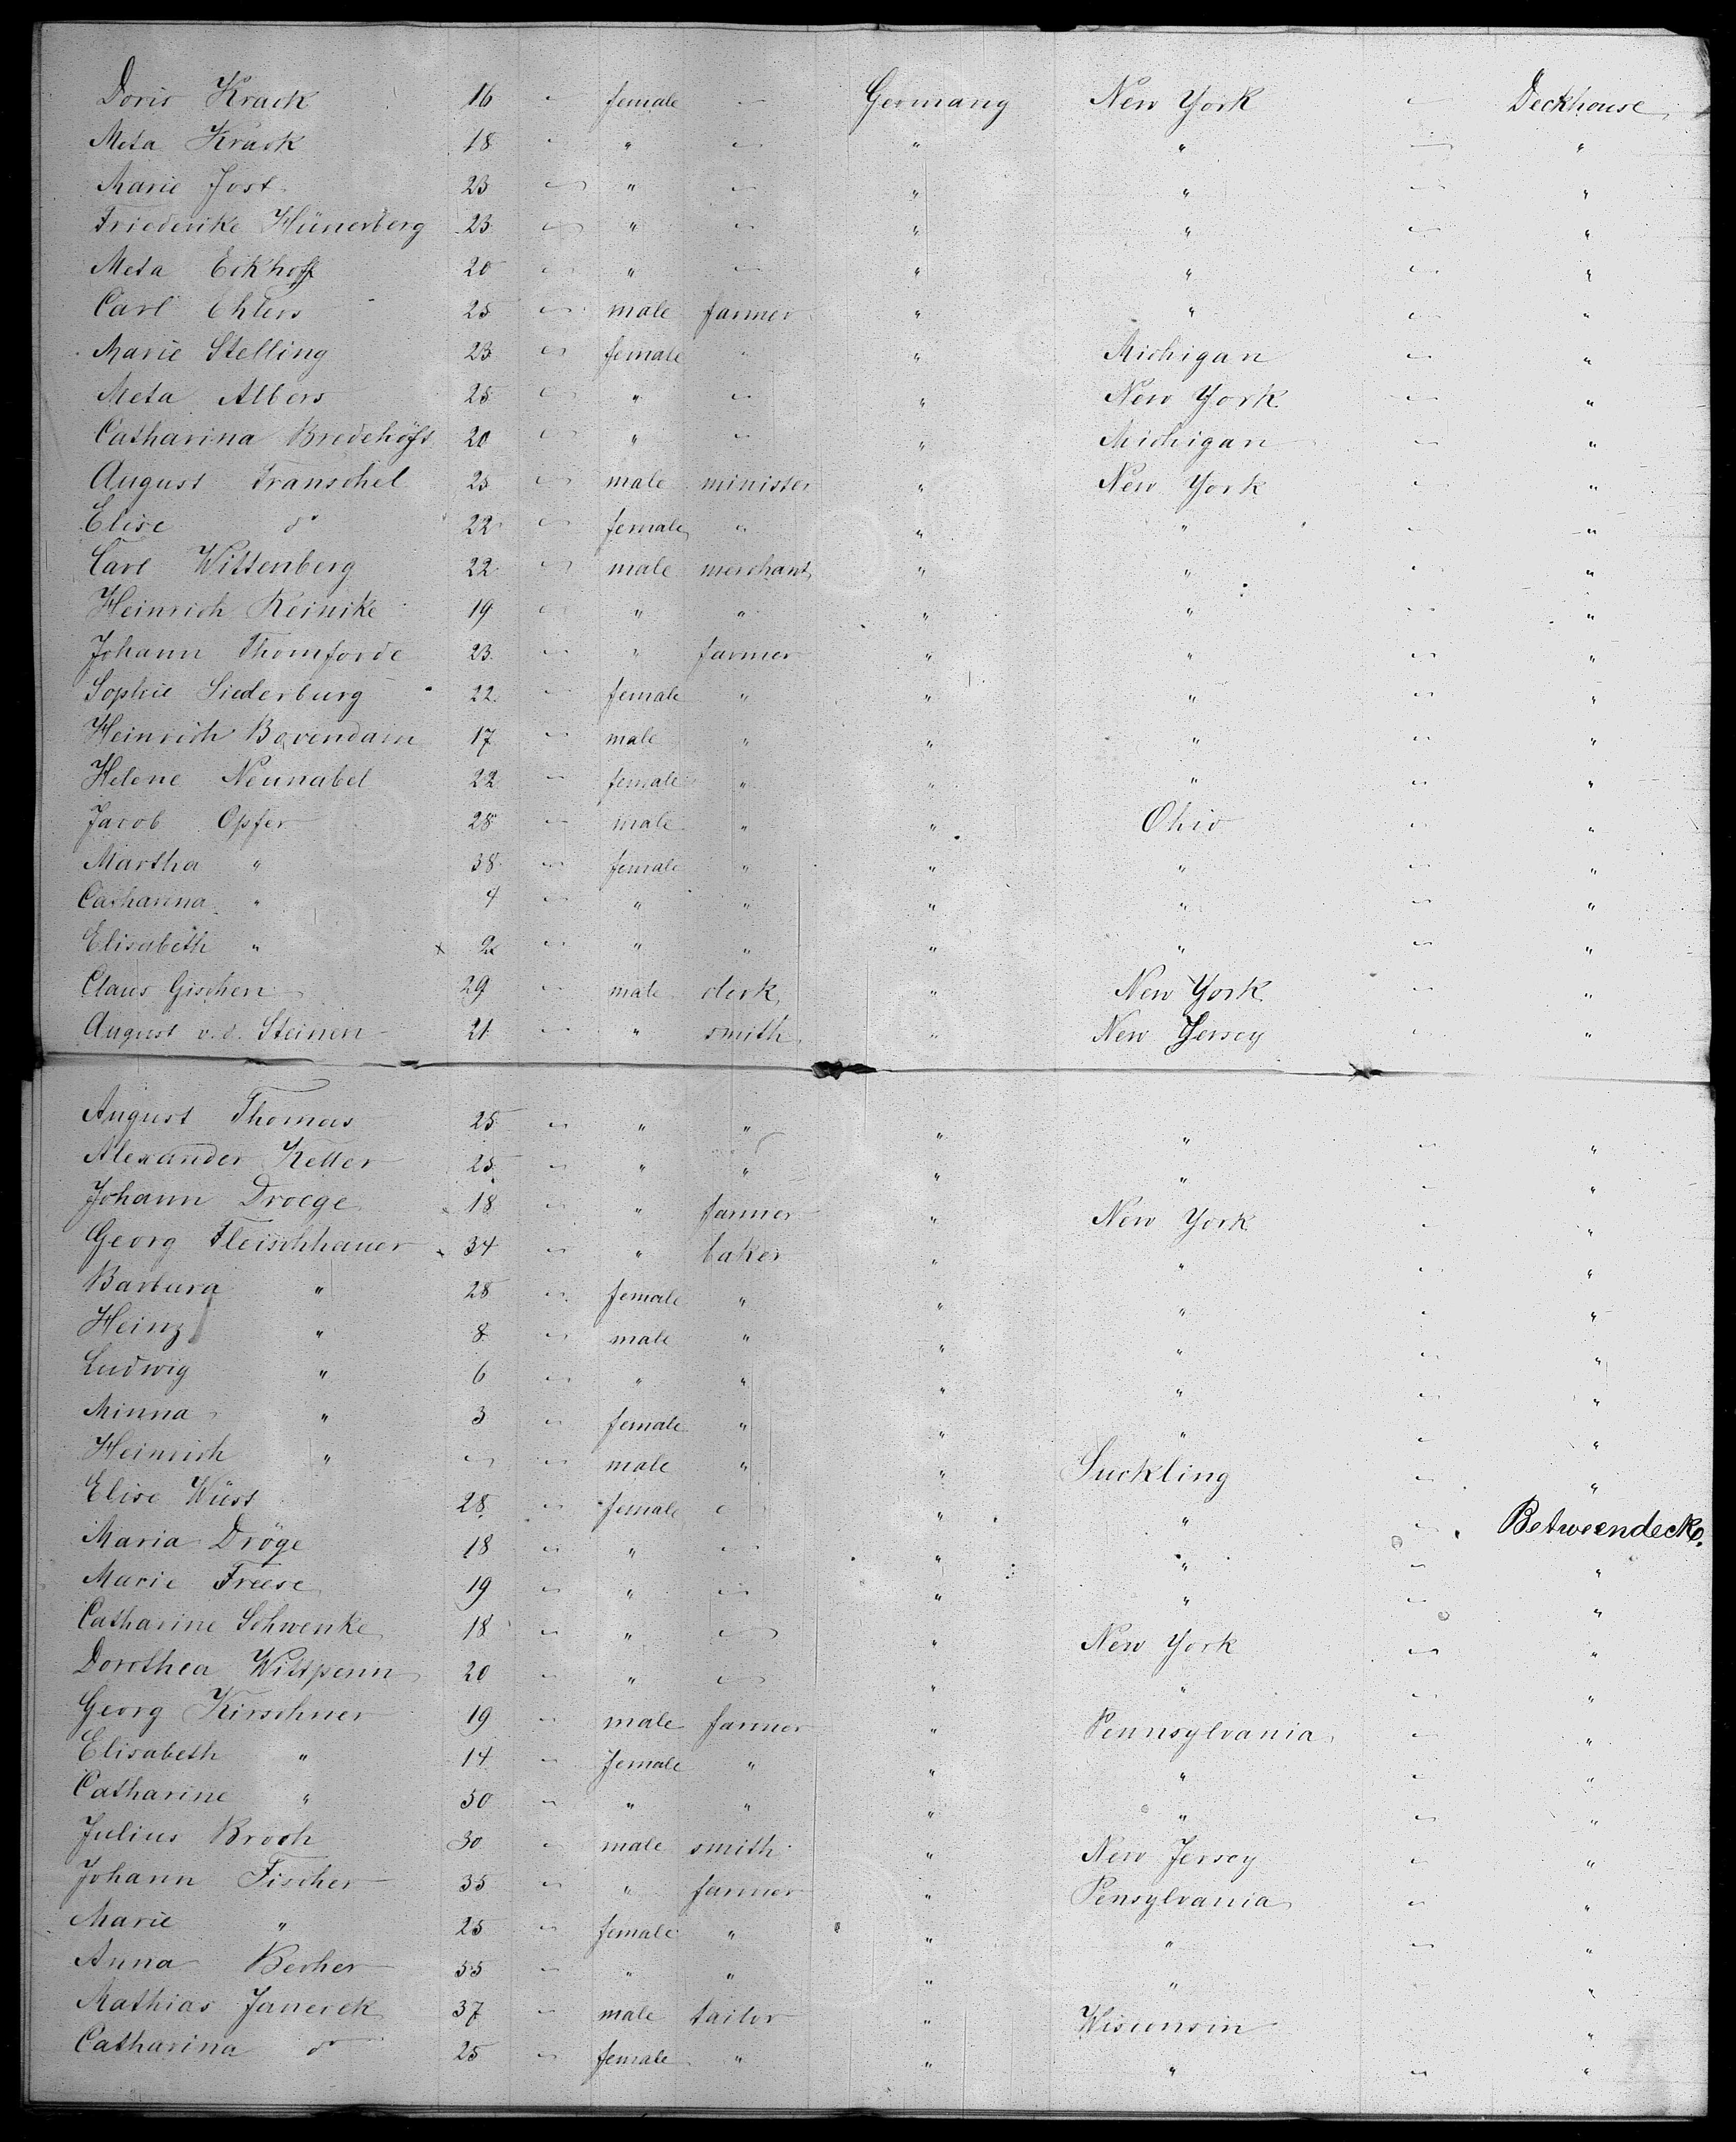 Doris Krack 16 — female — Germany New York — Deckhouse
Meta Krack 18 — " — " " — "
Marie Jost 23 — " — " " — "
Friederike Hünerberg 23 — " — " " — "
Meta Eckhoff 20 — " — " " — "
Carl Ehlers 25 — male farmer " " — "
Marie Stelling 23 — female " " Michigan — "
Meta Albers 25 — " — " New York — "
Catharina Bredehöft 20 — " — " Michigan — "
August Transchel 25 — male minister " New York — "
Elise do 22 — female " " " — "
Carl Wittenberg 22 — male merchant " " — "
Heinrich Reinike 19 — " " " " — "
Johann Thomforde 23 — " farmer " " — "
Sophie Siederburg 22 — female " " " — "
Heinrich Bovendam 17 — male " " " — "
Helene Neunabel 22 — female " " " — "
Jacob Opfer 28 — male " " Ohio — "
Martha " 38 — female " " " — "
Catharina " 4 — " " " " — "
Elisabeth " x 2 — " " " " — "
Claus Gischen 29 — male clerk " New York — "
August v. d. Steinen 21 — " smith " New Jersey — "
August Thomas 25 — " " " " — "
Alexander Keller 25 — " " " " — "
Johann Droege 18 — " farmer " New York — "
Georg Fleischhauer x 34 — " baker " " — "
Barbara " 28 — female " " " — "
Heinz " 8 — male " " " — "
Ludwig " 6 — " " " " — "
Minna " 3 — female " " " — "
Heinrich " — — male " " Suckling — "
Elise Wüst 28 — female — " " — Betweendeck.
Maria Dröge 18 — " — " " — "
Marie Freese 19 — " — " " — "
Catharine Schwenke 18 — " — " New York — "
Dorothea Wittpenn 20 — " — " " — "
Georg Kirschner 19 — male farmer " Pennsylvania — "
Elisabeth " 14 — female " " " — "
Catharine " 50 — " " " " — "
Julius Broch 30 — male smith " New Jersey — "
Johann Fischer 35 — " farmer " Pensylvania — "
Marie " 25 — female " " " — "
Anna Becher 55 — " " " " "
Mathias Janecek 37 — male tailor " Wisconsin "
Catharina do 25 — female " " " — "